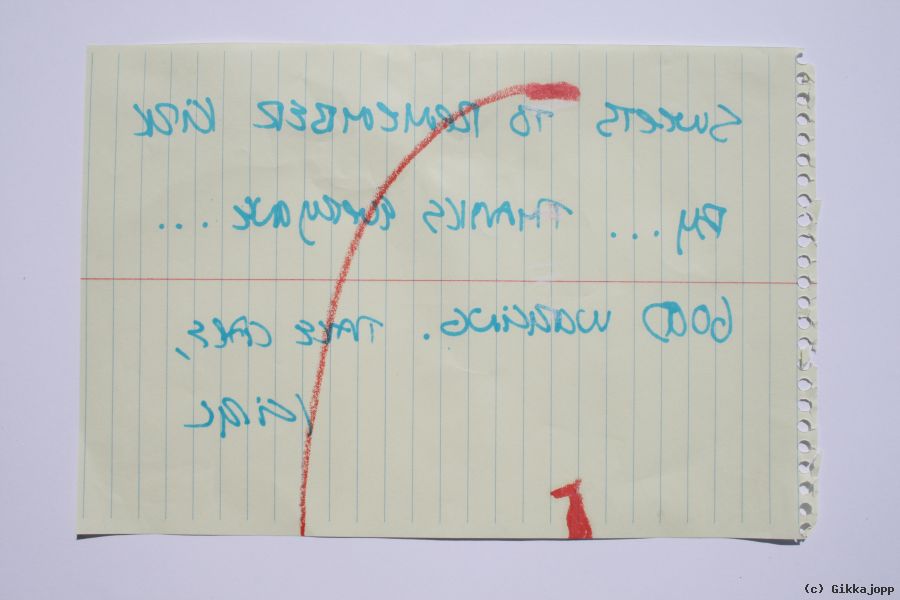 SWEETS TO REMEMBER KIRK
BY... THANKS everyone ...
GOOD WALKING. TAKE CARE,
(c) Gikkajopp